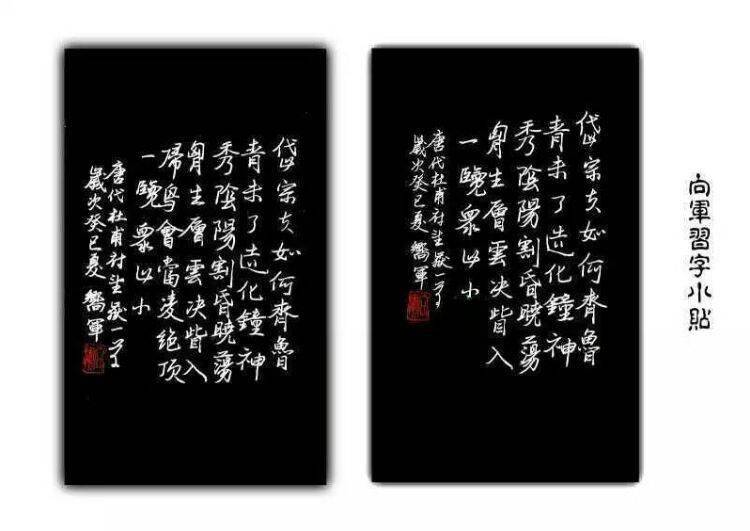 向軍習字小貼
岱宗夫如何齊魯
青未了造化鐘神
秀陰陽割昏曉蕩
胷生層雲決眥入
一覽衆山小
唐代杜甫诗望嶽一首
歲次癸巳夏嚮軍
岱宗夫如何齊魯
青未了造化鐘神
秀陰陽割昏曉蕩
胷生層雲決眥入
歸鸟會當凌絕頂
一覽衆山小
唐代杜甫诗望嶽一首
歲次癸巳夏嚮軍